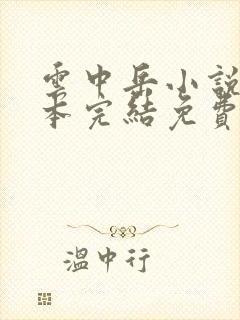 雲中岳小說
本完結免費
溫中行